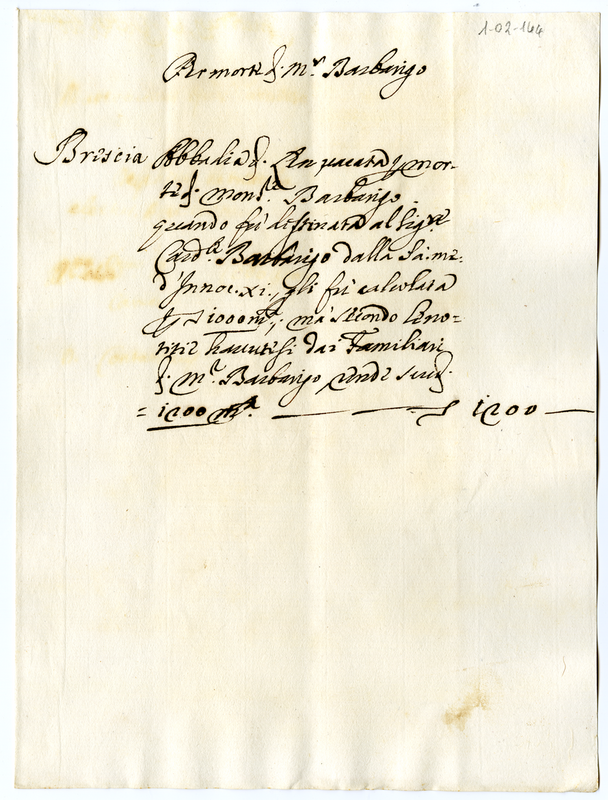 1-02-144
Per morte d. M.r Barbarigo
Brescia Abbadia d. vacata p mor-
te d. Mons.r Barbarigo
quando fù destinata al Sig.r
Card.le Barbarigo dalla Sa: me:
d'Innoc. xi., gli fù calcolata
1000 m.ta, mà secondo le no-
titie havutesi dai Familiari
d. M.r Barbarigo rende scudi
= 1200 m.ta 1200